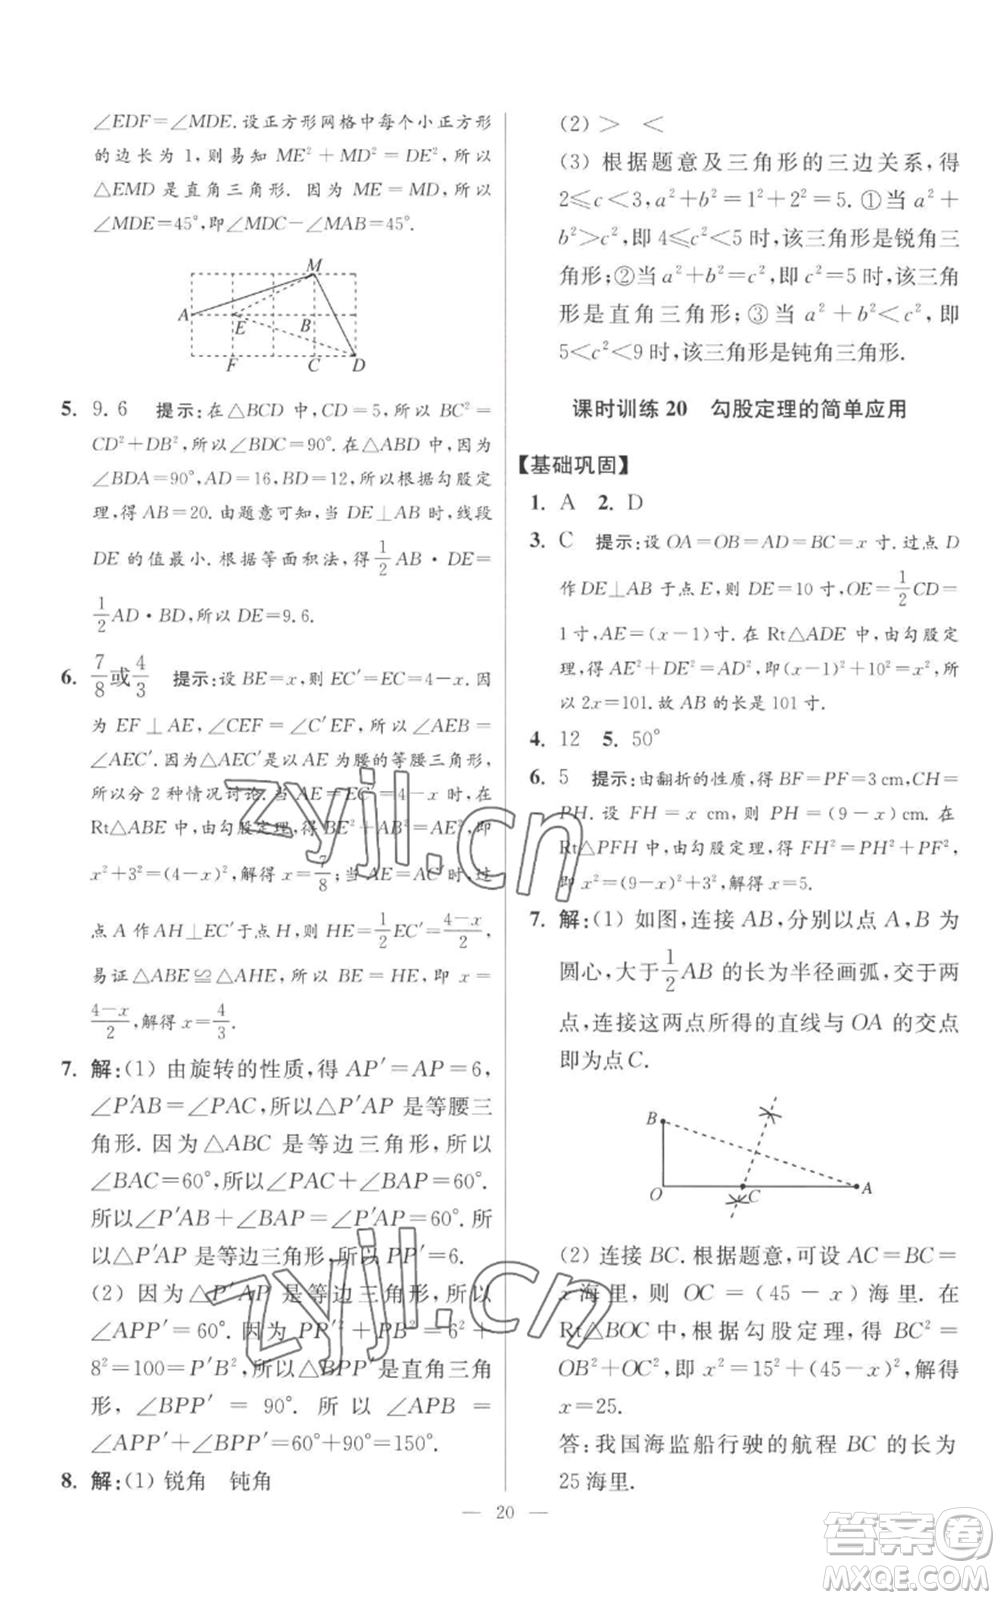 ∠EDF=∠MDE.设正方形网格中每个小正方形
的边长为 1,则易知 ME²+MD²=DE²,所以
△EMD 是直角三角形. 因为 ME=MD,所以
∠MDE=45°,即∠MDC-∠MAB=45°.
M
A E B
F C D
5. 9.6 提示:在△BCD 中,CD=5,所以 BC²=
CD²+DB²,所以∠BDC=90°.在△ABD 中,因为
∠BDA=90°,AD=16,BD=12,所以根据勾股定
理,得 AB=20.由题意可知,当 DE⊥AB 时,线段
DE 的值最小.根据等面积法,得 1/2 AB·DE=
1/2 AD·BD,所以 DE=9.6.
6. 7/8或4/3 提示:设 BE=x,则 EC′=EC=4-x.因
为 EF⊥AE,∠CEF=∠C′EF,所以∠AEB=
∠AEC′.因为△AEC′是以 AE 为腰的等腰三角形,
所以分 2 种情况讨论.当 AE=EC′=4-x 时,在
Rt△ABE 中,由勾股定理,得 BE²+AB²=AE²,即
x²+3²=(4-x)²,解得 x=7/8;当 AE=AC′时,过
点 A 作 AH⊥EC′于点 H,则 HE=1/2 EC′=(4-x)/2,
易证△ABE≌△AHE,所以 BE=HE,即 x=
(4-x)/2,解得 x=4/3.
7. 解:(1) 由旋转的性质,得 AP′=AP=6,
∠P′AB=∠PAC,所以△P′AP 是等腰三
角形.因为△ABC 是等边三角形,所以
∠BAC=60°,所以∠PAC+∠BAP=60°.
所以∠P′AB+∠BAP=∠P′AP=60°.所
以△P′AP 是等边三角形,所以 PP′=6.
(2) 因为△P′AP 是等边三角形,所以
∠APP′=60°.因为 PP′²+PB²=6²+
8²=100=P′B²,所以△BPP′是直角三角
形,∠BPP′=90°.所以∠APB=
∠APP′+∠BPP′=60°+90°=150°.
8. 解:(1) 锐角 钝角
(2) > <
(3) 根据题意及三角形的三边关系,得
2≤c<3,a²+b²=1²+2²=5.①当 a²+
b²>c²,即 4≤c²<5 时,该三角形是锐角三
角形;②当 a²+b²=c²,即 c²=5 时,该三角
形是直角三角形;③当 a²+b²<c²,即
5<c²<9 时,该三角形是钝角三角形.
课时训练 20 勾股定理的简单应用
【基础巩固】
1. A 2. D
3. C 提示:设 OA=OB=AD=BC=x 寸.过点 D
作 DE⊥AB 于点 E,则 DE=10 寸,OE=1/2 CD=
1 寸,AE=(x-1)寸.在 Rt△ADE 中,由勾股定
理,得 AE²+DE²=AD²,即(x-1)²+10²=x²,所
以 2x=101.故 AB 的长是 101 寸.
4. 12 5. 50°
6. 5 提示:由翻折的性质,得 BF=PF=3 cm,CH=
PH.设 FH=x cm,则 PH=(9-x) cm.在
Rt△PFH 中,由勾股定理,得 FH²=PH²+PF²,
即 x²=(9-x)²+3²,解得 x=5.
7. 解:(1) 如图,连接 AB,分别以点 A,B 为
圆心,大于 1/2 AB 的长为半径画弧,交于两
点,连接这两点所得的直线与 OA 的交点
即为点 C.
B
O C A
(2) 连接 BC.根据题意,可设 AC=BC=
x 海里,则 OC=(45-x)海里.在
Rt△BOC 中,根据勾股定理,得 BC²=
OB²+OC²,即 x²=15²+(45-x)²,解得
x=25.
答:我国海监船行驶的航程 BC 的长为
25 海里.
— 20 —
zyjl.cn
zyjl.cn
答案圈
MXQE.COM